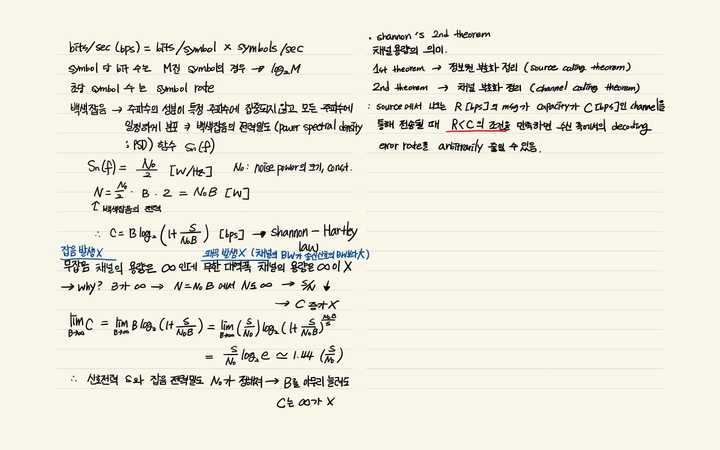 bits/sec (bps) = bits/symbol × symbols/sec
symbol 당 bit 수는 M진 symbol의 경우 → log₂M
초당 symbol 수는 symbol rate
백색잡음 → 주파수의 성분이 특정 주파수에 집중되지 않고 모든 주파수에
일정하게 분포 → 백색잡음의 전력밀도 (power spectral density
: PSD) 함수 Sn(f)
Sn(f) = N₀/2 [W/Hz] N₀ : noise power의 크기, const.
N = N₀/2 · B · 2 = N₀B [W]
↑ 백색잡음의 전력
∴ C = B log₂ (1+ S/N₀B) [bps] → shannon - Hartley
law
잡음 발생 X 왜곡 발생 X (채널의 BW가 송신신호의 BW보다 大)
무잡음 채널의 용량은 ∞ 인데 무한 대역폭 채널의 용량은 ∞ 이 X
→ why? B가 ∞ → N = N₀B 에서 N도 ∞ → S/N ↓
→ C 증가 X
lim B→∞ C = lim B→∞ B log₂ (1+ S/N₀B) = lim B→∞ (S/N₀) log₂ (1+ S/N₀B)^(N₀B/S)
= S/N₀ log₂ e ≃ 1.44 (S/N₀)
∴ 신호전력 S와 잡음 전력밀도 N₀가 정해져 → B를 아무리 늘려도
C는 ∞가 X
· shannon's 2nd theorem
채널용량의 의미.
1st theorem → 정보원 부호화 정리 (source coding theorem)
2nd theorem → 채널 부호화 정리 (channel coding theorem)
: source에서 나오는 R [bps]의 msg가 capacity가 C [bps]인 channel을
통해 전송될 때 R<C의 조건을 만족하면 수신 측에서의 decoding
error rate를 arbitrarily 줄일 수 있음.